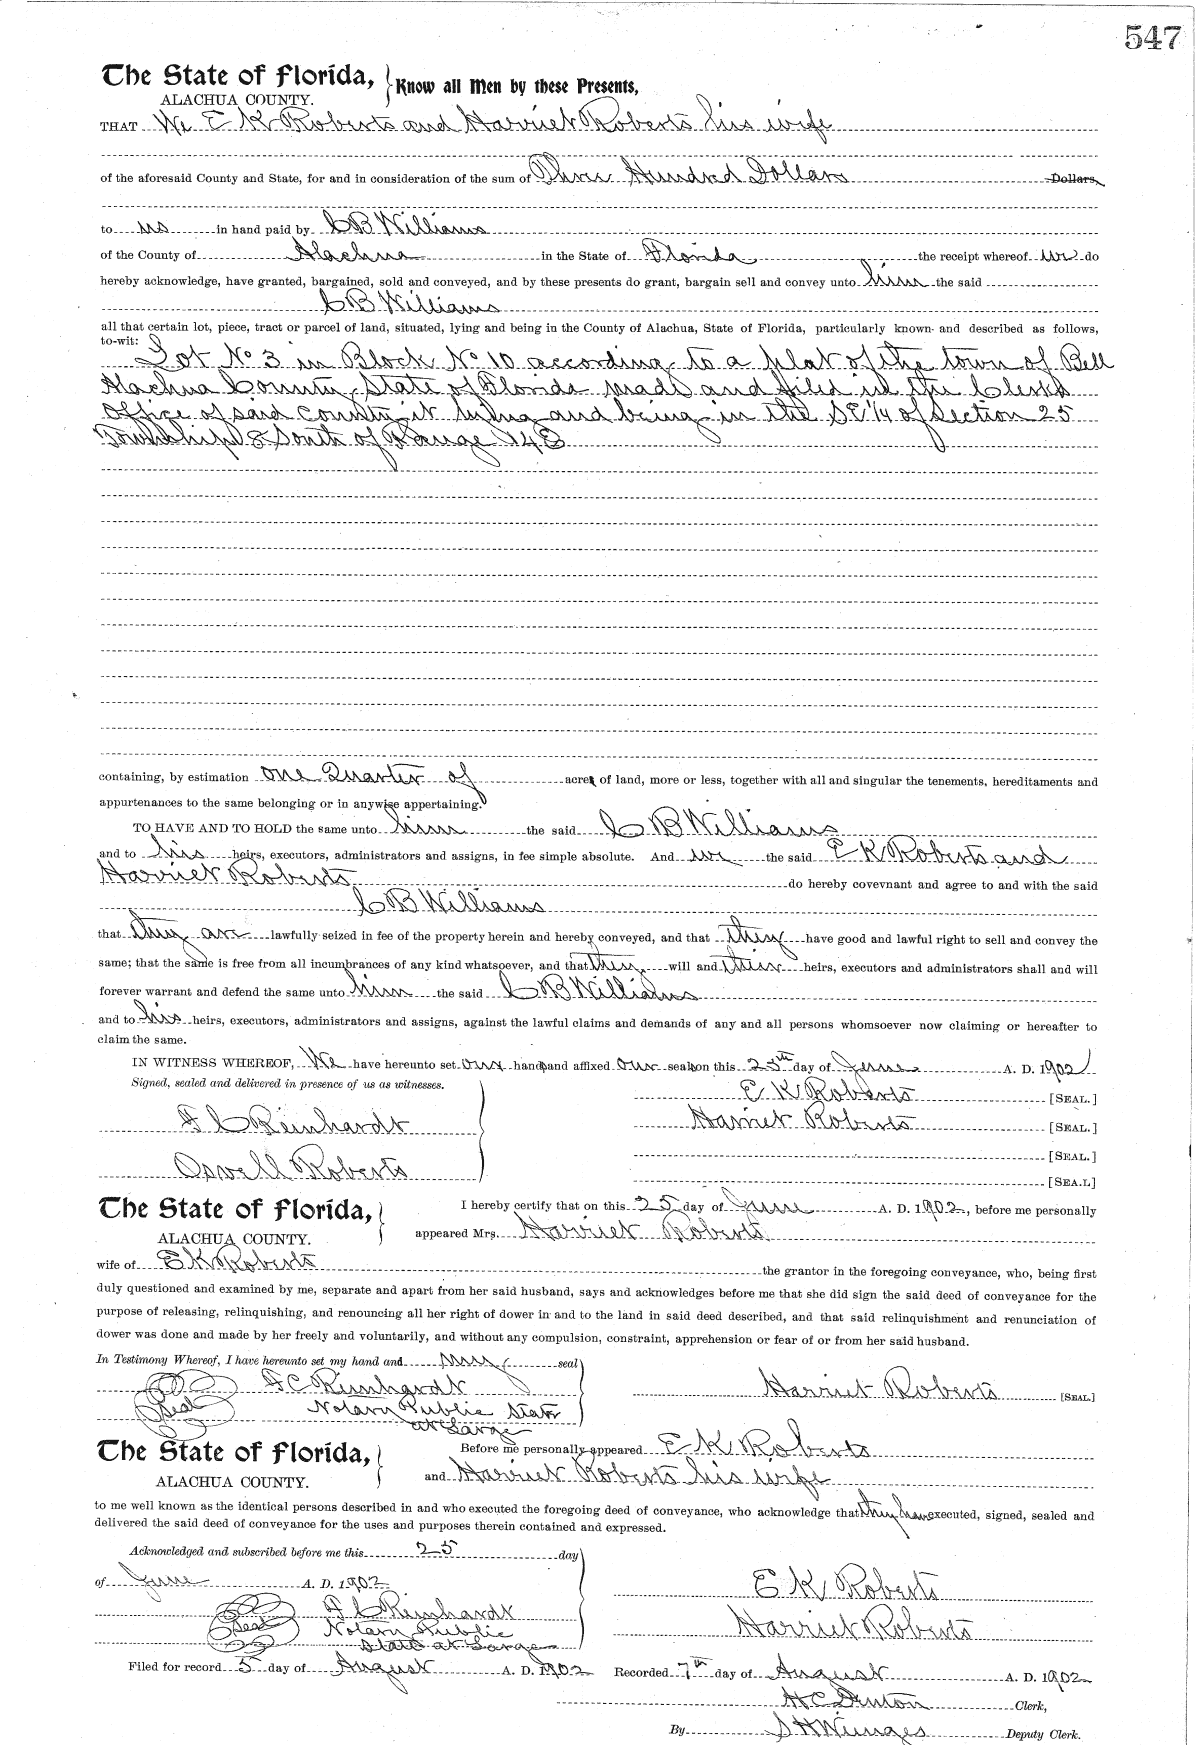 547
The State of Florida, Know all Men by these Presents,
ALACHUA COUNTY.
THAT We E K Roberts and Harriet Roberts his wife
of the aforesaid County and State, for and in consideration of the sum of Three Hundred Dollars Dollars,
to us in hand paid by C B Williams
of the County of Alachua in the State of Florida the receipt whereof we do
hereby acknowledge, have granted, bargained, sold and conveyed, and by these presents do grant, bargain sell and convey unto him the said
C B Williams
all that certain lot, piece, tract or parcel of land, situated, lying and being in the County of Alachua, State of Florida, particularly known and described as follows,
to-wit:
Lot No 3 in Block No 10 according to a plat of the town of Bell
Alachua County, State of Florida made and filed in the Clerks
Office of said County it lying and being in the SE 1/4 of Section 25
Township 8 South of Range 14 E
containing, by estimation one Quarter of acre of land, more or less, together with all and singular the tenements, hereditaments and
appurtenances to the same belonging or in anywise appertaining.
TO HAVE AND TO HOLD the same unto him the said C B Williams
and to his heirs, executors, administrators and assigns, in fee simple absolute. And we the said E K Roberts and
Harriet Roberts do hereby covevnant and agree to and with the said
C B Williams
that they are lawfully seized in fee of the property herein and hereby conveyed, and that they have good and lawful right to sell and convey the
same; that the same is free from all incumbrances of any kind whatsoever, and that they will and their heirs, executors and administrators shall and will
forever warrant and defend the same unto him the said C B Williams
and to his heirs, executors, administrators and assigns, against the lawful claims and demands of any and all persons whomsoever now claiming or hereafter to
claim the same.
IN WITNESS WHEREOF, We have hereunto set our hands and affixed our seals on this 25th day of June A. D. 1902
Signed, sealed and delivered in presence of us as witnesses.
E K Roberts [SEAL.]
F C Reinhardt Harriet Roberts [SEAL.]
[SEAL.]
Oswell Roberts
[SEA.L]
The State of Florida, I hereby certify that on this 25 day of June A. D. 1902, before me personally
ALACHUA COUNTY. appeared Mrs. Harriet Roberts
wife of E K Roberts the grantor in the foregoing conveyance, who, being first
duly questioned and examined by me, separate and apart from her said husband, says and acknowledges before me that she did sign the said deed of conveyance for the
purpose of releasing, relinquishing, and renouncing all her right of dower in and to the land in said deed described, and that said relinquishment and renunciation of
dower was done and made by her freely and voluntarily, and without any compulsion, constraint, apprehension or fear of or from her said husband.
In Testimony Whereof, I have hereunto set my hand and my seal
F C Reinhardt Harriet Roberts [SEAL.]
Seal Notary Public State
at Large
The State of Florida, Before me personally appeared E K Roberts
ALACHUA COUNTY. and Harriet Roberts his wife
to me well known as the identical persons described in and who executed the foregoing deed of conveyance, who acknowledge that they have executed, signed, sealed and
delivered the said deed of conveyance for the uses and purposes therein contained and expressed.
Acknowledged and subscribed before me this 25 day
of June A. D. 1902 E K Roberts
F C Reinhardt
Seal Notary Public Harriet Roberts
State at Large
Filed for record 5 day of August A. D. 1902 Recorded 7th day of August A. D. 1902
H C Denton Clerk,
By S H Wienges Deputy Clerk.